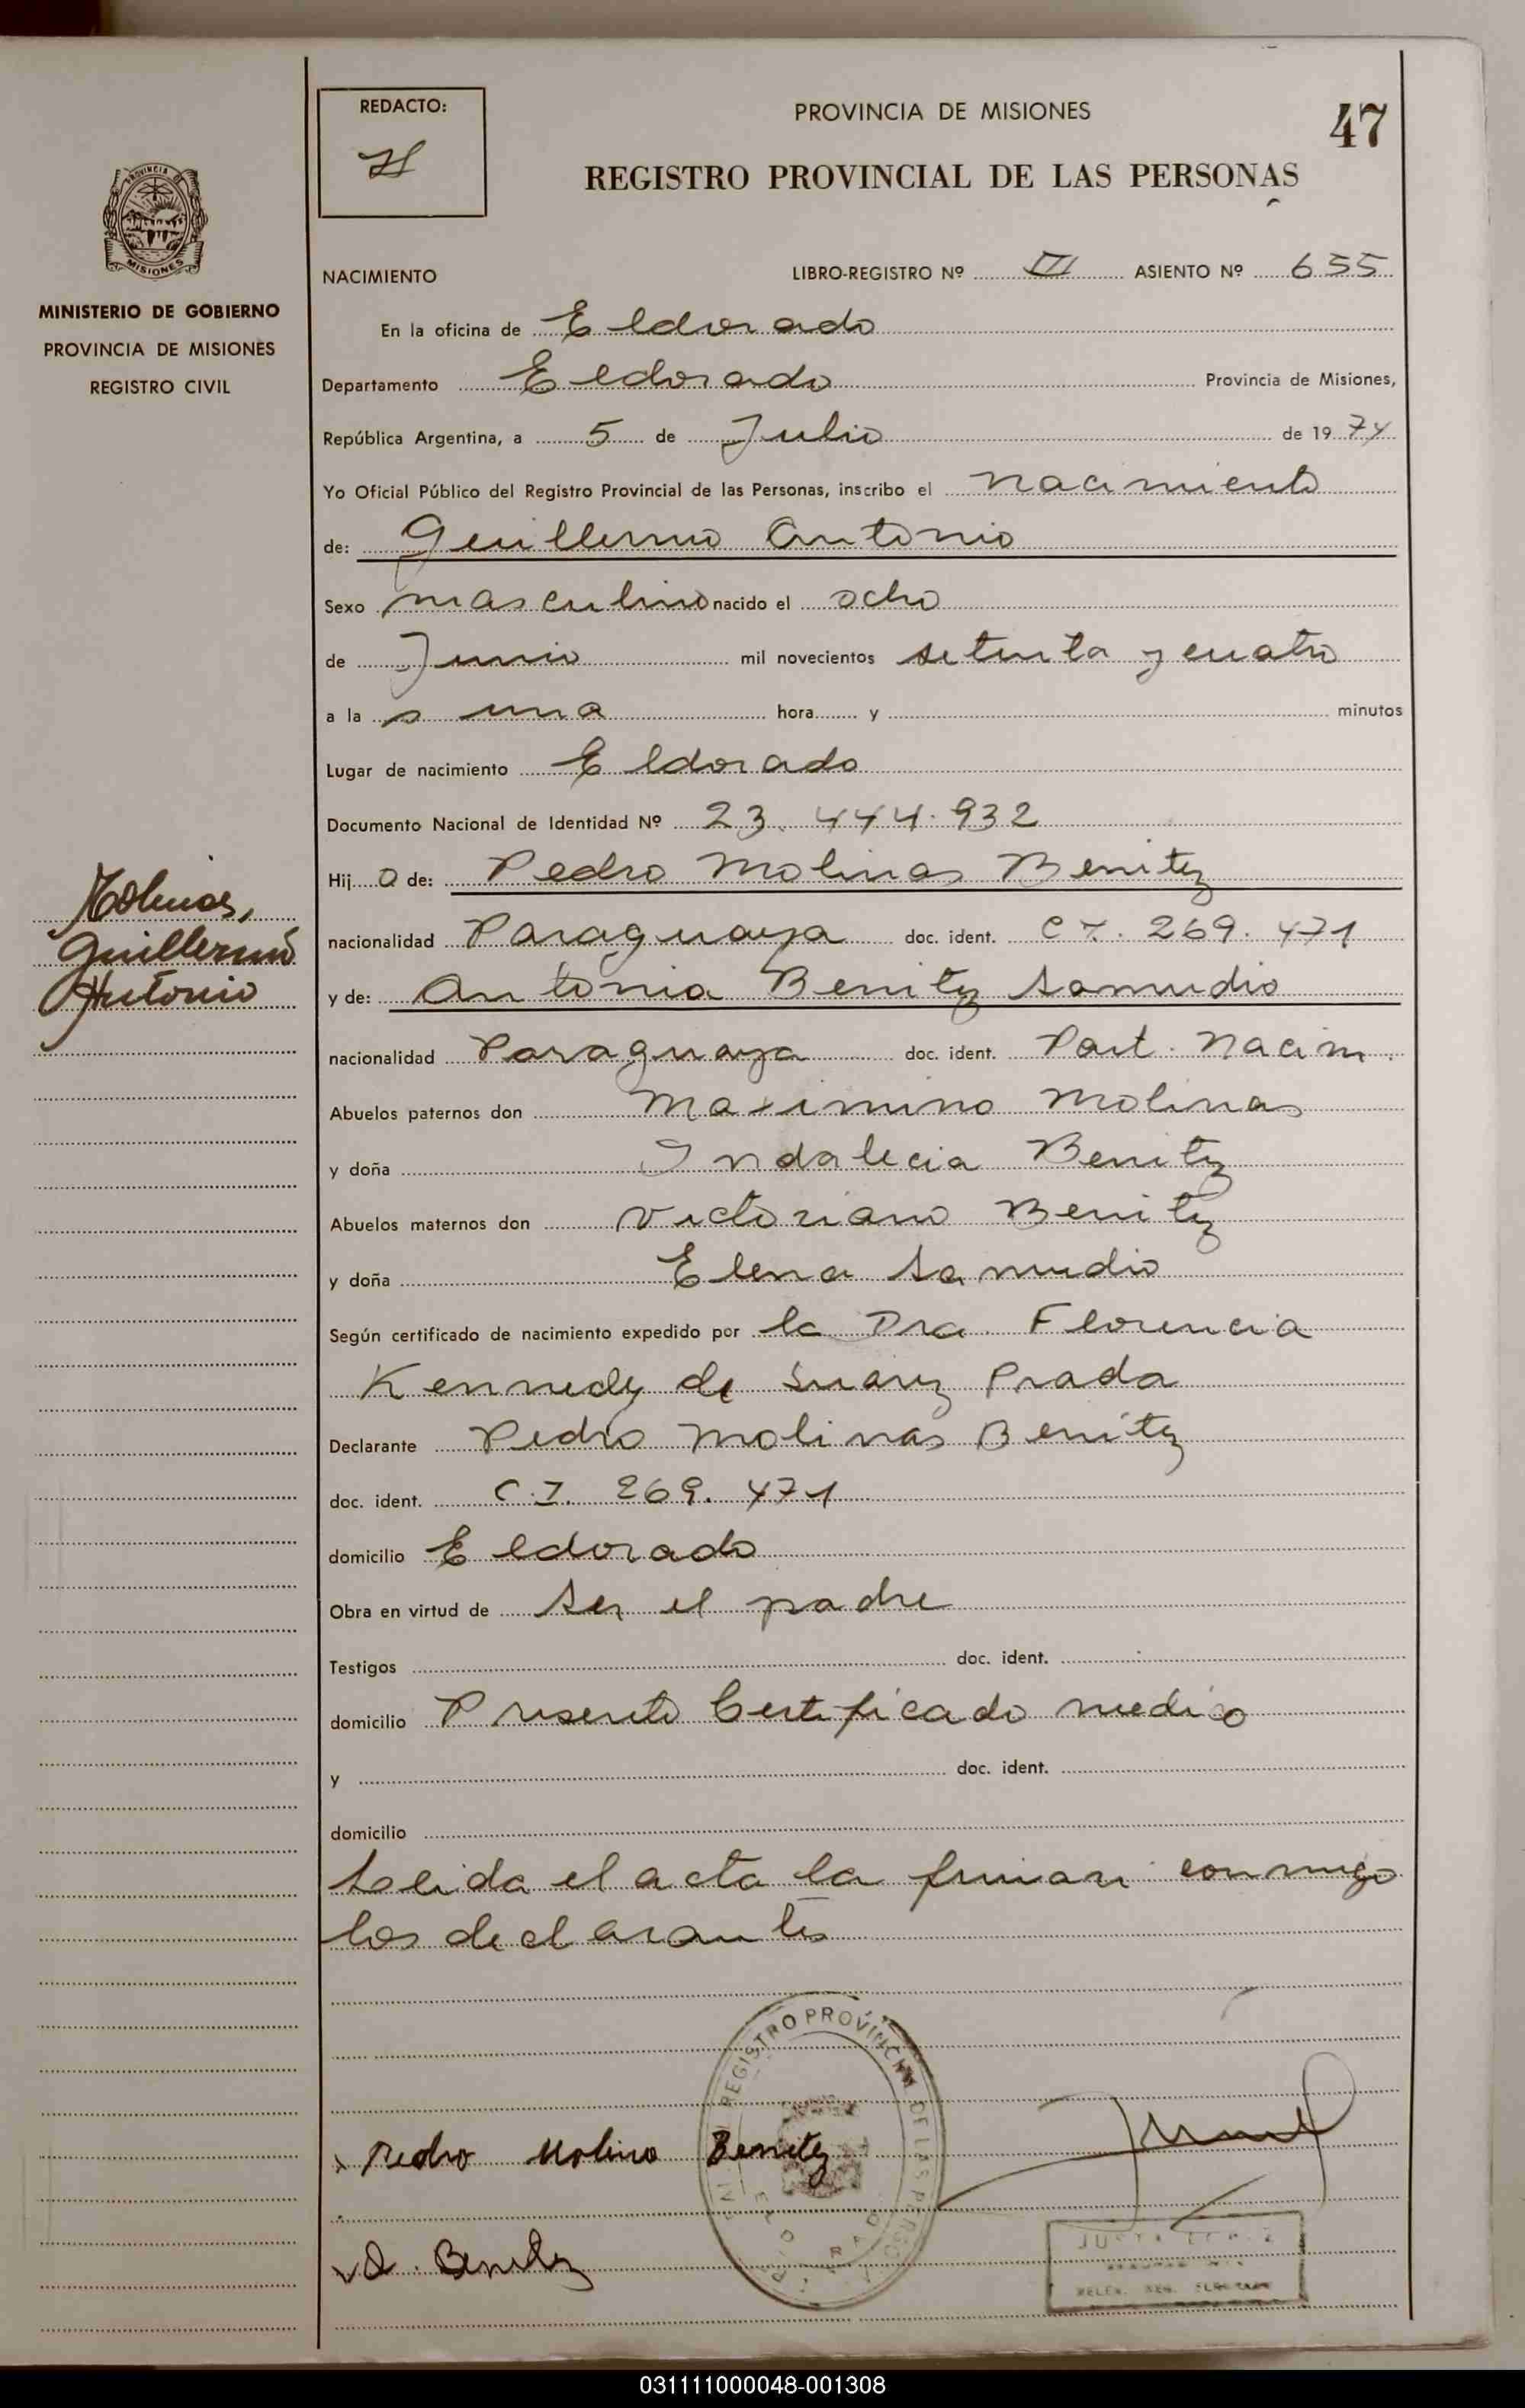 REDACTO:
H
PROVINCIA DE MISIONES
47
REGISTRO PROVINCIAL DE LAS PERSONAS
PROVINCIA DE
MISIONES
MINISTERIO DE GOBIERNO
PROVINCIA DE MISIONES
REGISTRO CIVIL
NACIMIENTO LIBRO-REGISTRO Nº III ASIENTO Nº 655
En la oficina de Eldorado
Departamento Eldorado Provincia de Misiones,
República Argentina, a 5 de Julio de 1974
Yo Oficial Público del Registro Provincial de las Personas, inscribo el nacimiento
de: Guillermo Antonio
Sexo masculino nacido el ocho
de Junio mil novecientos setenta y cuatro
a la s una hora y minutos
Lugar de nacimiento Eldorado
Documento Nacional de Identidad Nº 23.444.932
Hij o de: Pedro Molinas Benitez
Molinas,
Guillermo
Antonio
nacionalidad Paraguaya doc. ident. C I. 269.471
y de: Antonia Benitez Samudio
nacionalidad Paraguaya doc. ident. Part. Nacim.
Abuelos paternos don Maximino Molinas
y doña Indalecia Benitez
Abuelos maternos don Victoriano Benitez
y doña Elena Samudio
Según certificado de nacimiento expedido por la Dra. Florencia
Kennedy de Suarez Prada
Declarante Pedro Molinas Benitez
doc. ident. C.I. 269.471
domicilio Eldorado
Obra en virtud de ser el padre
Testigos doc. ident.
domicilio Presento Certificado medico
y doc. ident.
domicilio
Leida el acta la firman conmigo
los declarantes
REGISTRO PROVINCIAL DE LAS PERSONAS
ELDORADO
Pedro Molina Benitez
A. Benitez
031111000048-001308